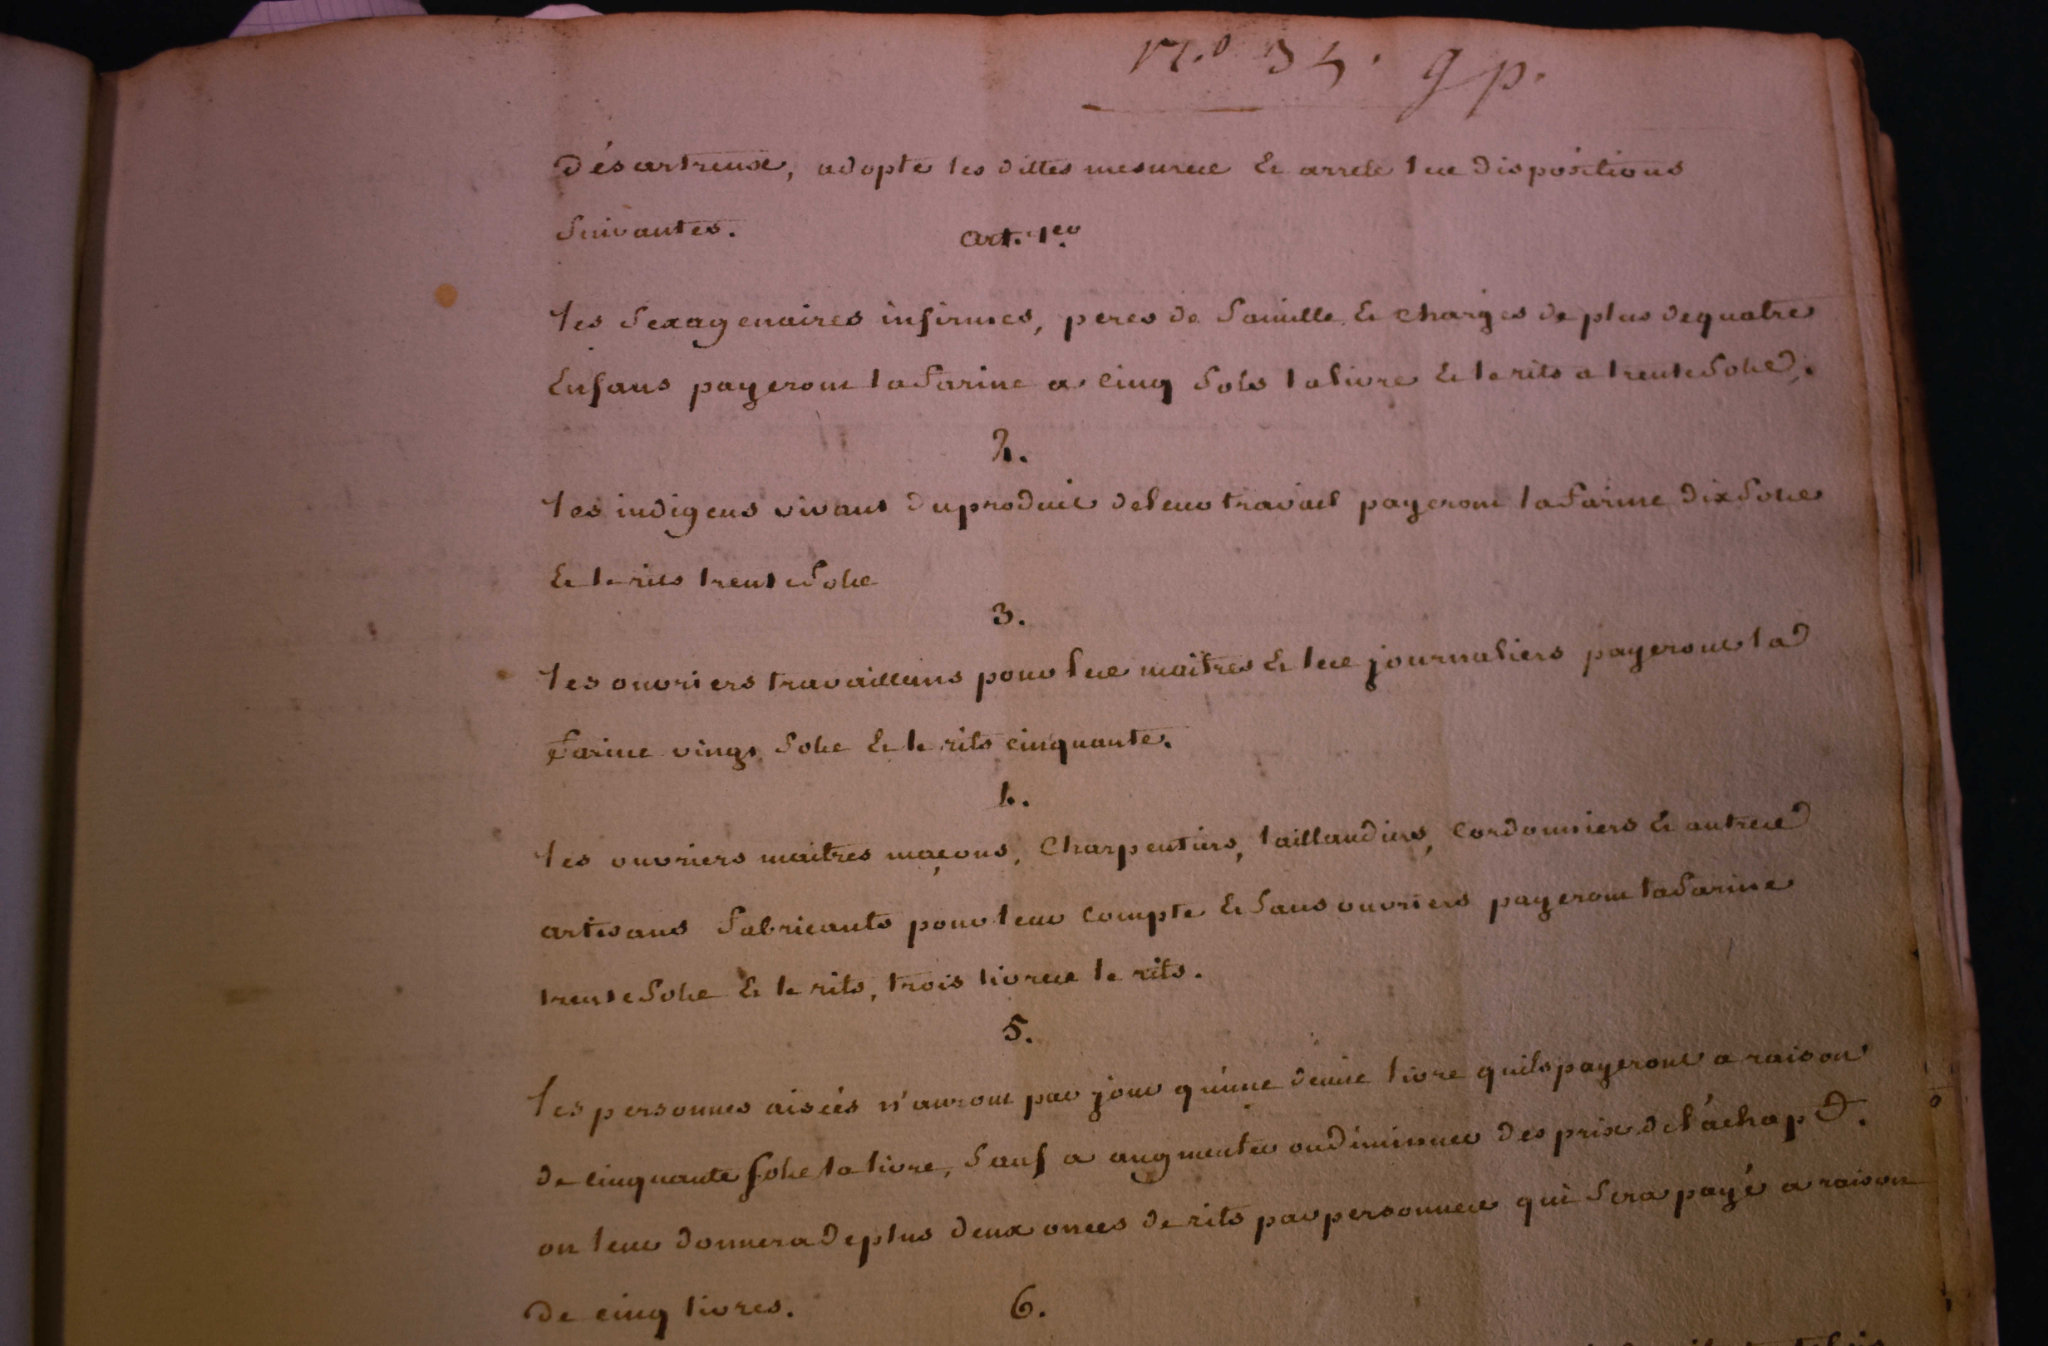 n.o 35. gp.
désartreuse, adopte les dittes mesures & arrete les dispositions
suivantes.
art. 1er
les sexagenaires infirmes, peres de famille & chargés de plus de quatre
Enfans payeront la farine a cinq sols la livre & le rits a trente sols.
2.
les indigens vivant du produit de leur travail payeront la farine dix sols
& le rits trente sols
3.
les ouvriers travaillans pour les maitres & les journaliers payeront la
farine vingt sols & le rits cinquante.
4.
les ouvriers maitres maçons, Charpentiers, taillandiers, Cordonniers & autres
artisans fabricants pour leur compte & sans ouvriers payeront la farine
trente sols & le rits, trois livres le rits.
5.
les personnes aisées n'auront par jour qu'une demie livre quils payeront a raison
de cinquante sols la livre, sauf a augmenter ou diminuer des prix de l'achapt.
on leur donnera de plus deux onces de rits par personnes qui sera payé a raison
de cinq livres.
6.